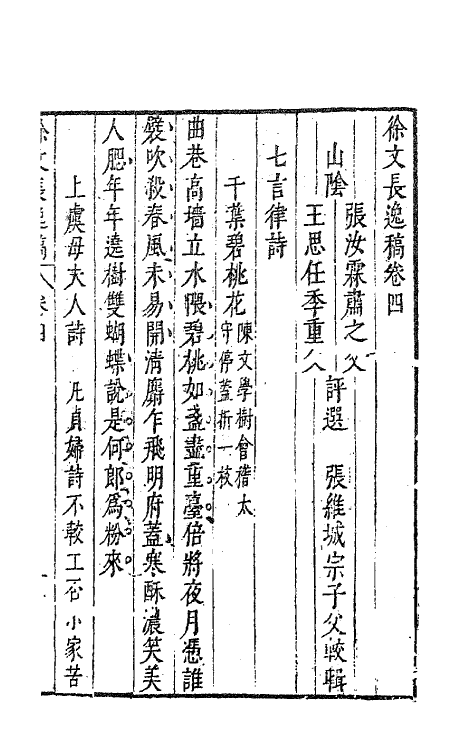 徐文長逸稿卷四
山陰
張汝霖肅之父
王思任季重父
評選
張維城宗子父較輯
七言律詩
千葉碧桃花
陳文學樹會稽太
守停蓋折一枝
曲巷高墻立水隈碧桃如盞盡重臺倍將夜月憑誰
襞吹殺春風未易開清麝乍飛明府蓋寒酥濃笑美
人腮年年遶樹雙蝴蝶說是何郎為粉來
上虞母夫人詩
凡貞婦詩不較工
小家苦
徐文長逸稿
卷四